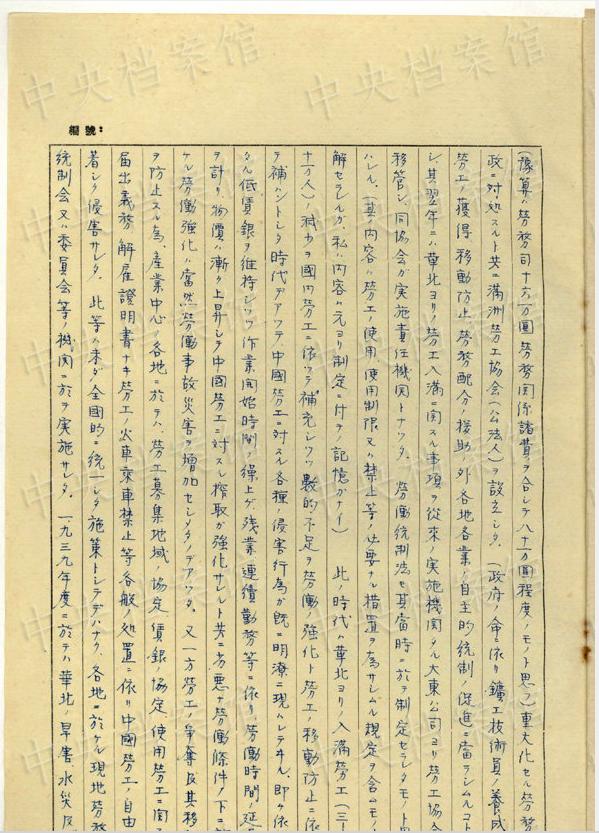 編號：
（豫算ハ労務司十六万圓労務関係諸費ヲ合シテ八十万圓程度ノモノト思フ）重大化セル労務
政ニ対処スルト共ニ満洲労工協会（公法人）ヲ設立シタ。（政府ノ命ニ依リ鑛工技術員ノ養成
労工ノ獲得移動防止労務配分ノ援助ノ外各地各業ノ自主的統制ノ促進ニ當ラシムルコト
シ、其翌年ニハ華北ヨリノ労工入満ニ関スル事項ヲ從来ノ実施機関タル大東公司ヨリ労工協会
移管シ、同協会ガ実施責任機関トナツタ。労働統制法モ其當時ニ於テ制定セラレタモノト思
ハレル。（其ノ内容ハ労工ノ使用、使用制限又ハ禁止等ノ必要ナル措置ヲ為サシムル規定ヲ含ムモノ
解セラレルガ、私ハ内容ハ元ヨリ制定ニ付テノ記憶ガナイ）此ノ時代ハ華北ヨリノ入満労工（三一
十一万人）ノ減少ヲ國内労工ニ依ツテ補充シツツ数的ノ不足ヲ労働ノ強化ト労工ノ移動防止ニ依
テ補ハントシタ時代デアツテ、中國労工ニ対スル各種ノ侵害行為ガ既ニ明瞭ニ現ハレテヰル。即チ依
タル低賃銀ヲ維持シツツ作業開始時間ノ繰上ゲ残業連續勤務等ニ依リ、労働時間ノ延
ヲ計リ物價ハ漸ク上昇シテ中國労工ニ対スル搾取ガ強化サレルト共ニ劣悪ナ労働條件ノ下ニ於
ケル労働強化ハ當然労働事故災害ヲ増加セシメタノデアツタ。又一方労工ノ爭奪及其移
ヲ防止スル為、産業中心ノ各地ニ於テハ、労工募集地域ノ協定賃銀ノ協定、使用労工ニ関ス
届出義務、解雇證明書ナキ労工ノ火車乘車禁止等各般ノ処置ニ依リ中國労工ノ自由
著シク侵害サレタ。此等ハ未ダ全國的ニ統一シタ施策トシテデハナク、各地ニ於ケル現地労務
統制会又ハ委員会等ノ機関ニ於テ実施サレタ。一九三九年度ニ於テハ華北ノ旱害、水災及
中央档案馆